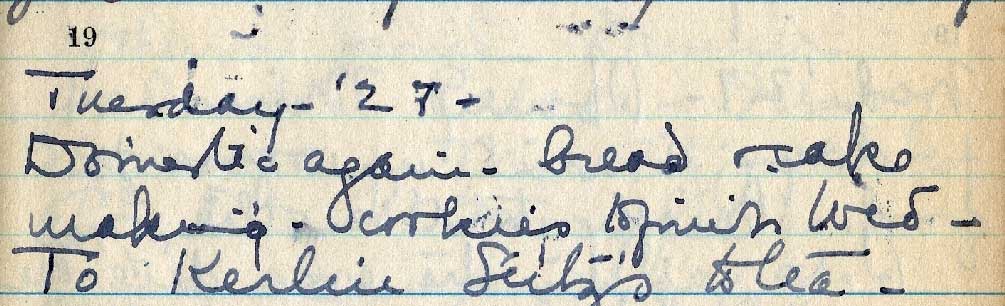 19
Tuesday - '27 -
Domestic again - bread & cake
making - cookies to finish Wed -
To Seitz's to tea -